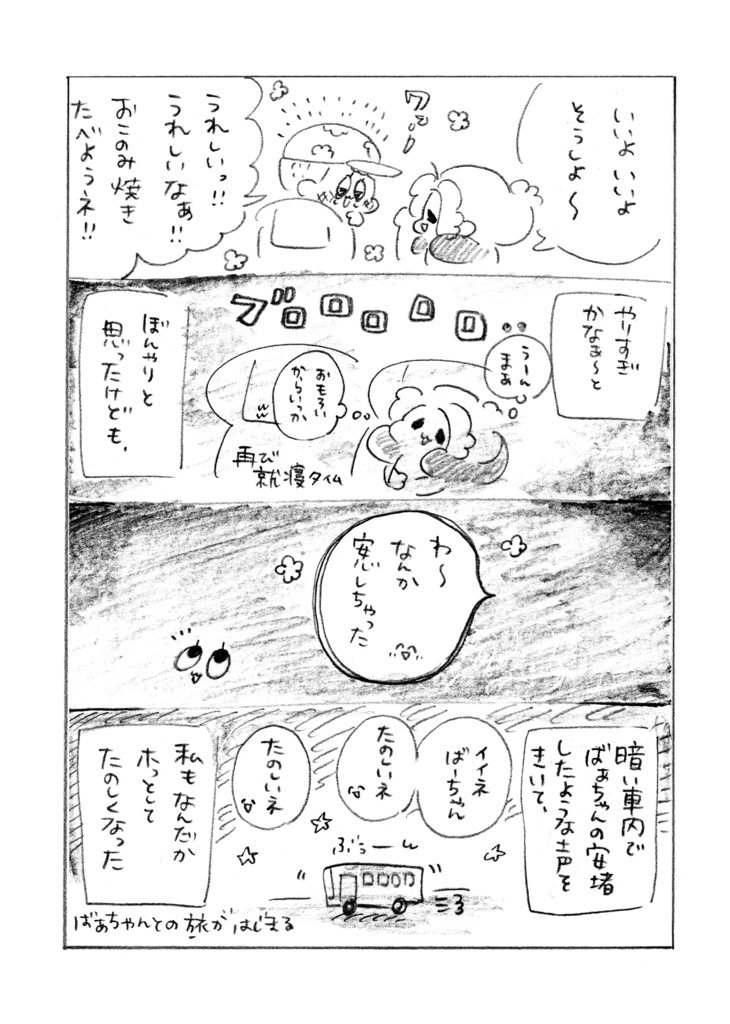 いいよいいよ
そうしよ〜
ワー
うれしいっ!!
うれしいなぁ!!
おこのみ焼き
たべようネ!!
やりすぎ
かなぁ〜と
うーん
まぁ
ブロロロロロ
おもろい
からいっか
再び
就寝タイム
ぼんやりと
思ったけども、
わ〜
なんか
安心しちゃった
暗い車内で
ばぁちゃんの安堵
したような声を
きいて、
イイネ
ばーちゃん
たのしいネ
たのしいネ
ぶぅーん
私もなんだか
ホッとして
たのしくなった
ばあちゃんとの旅がはじまる